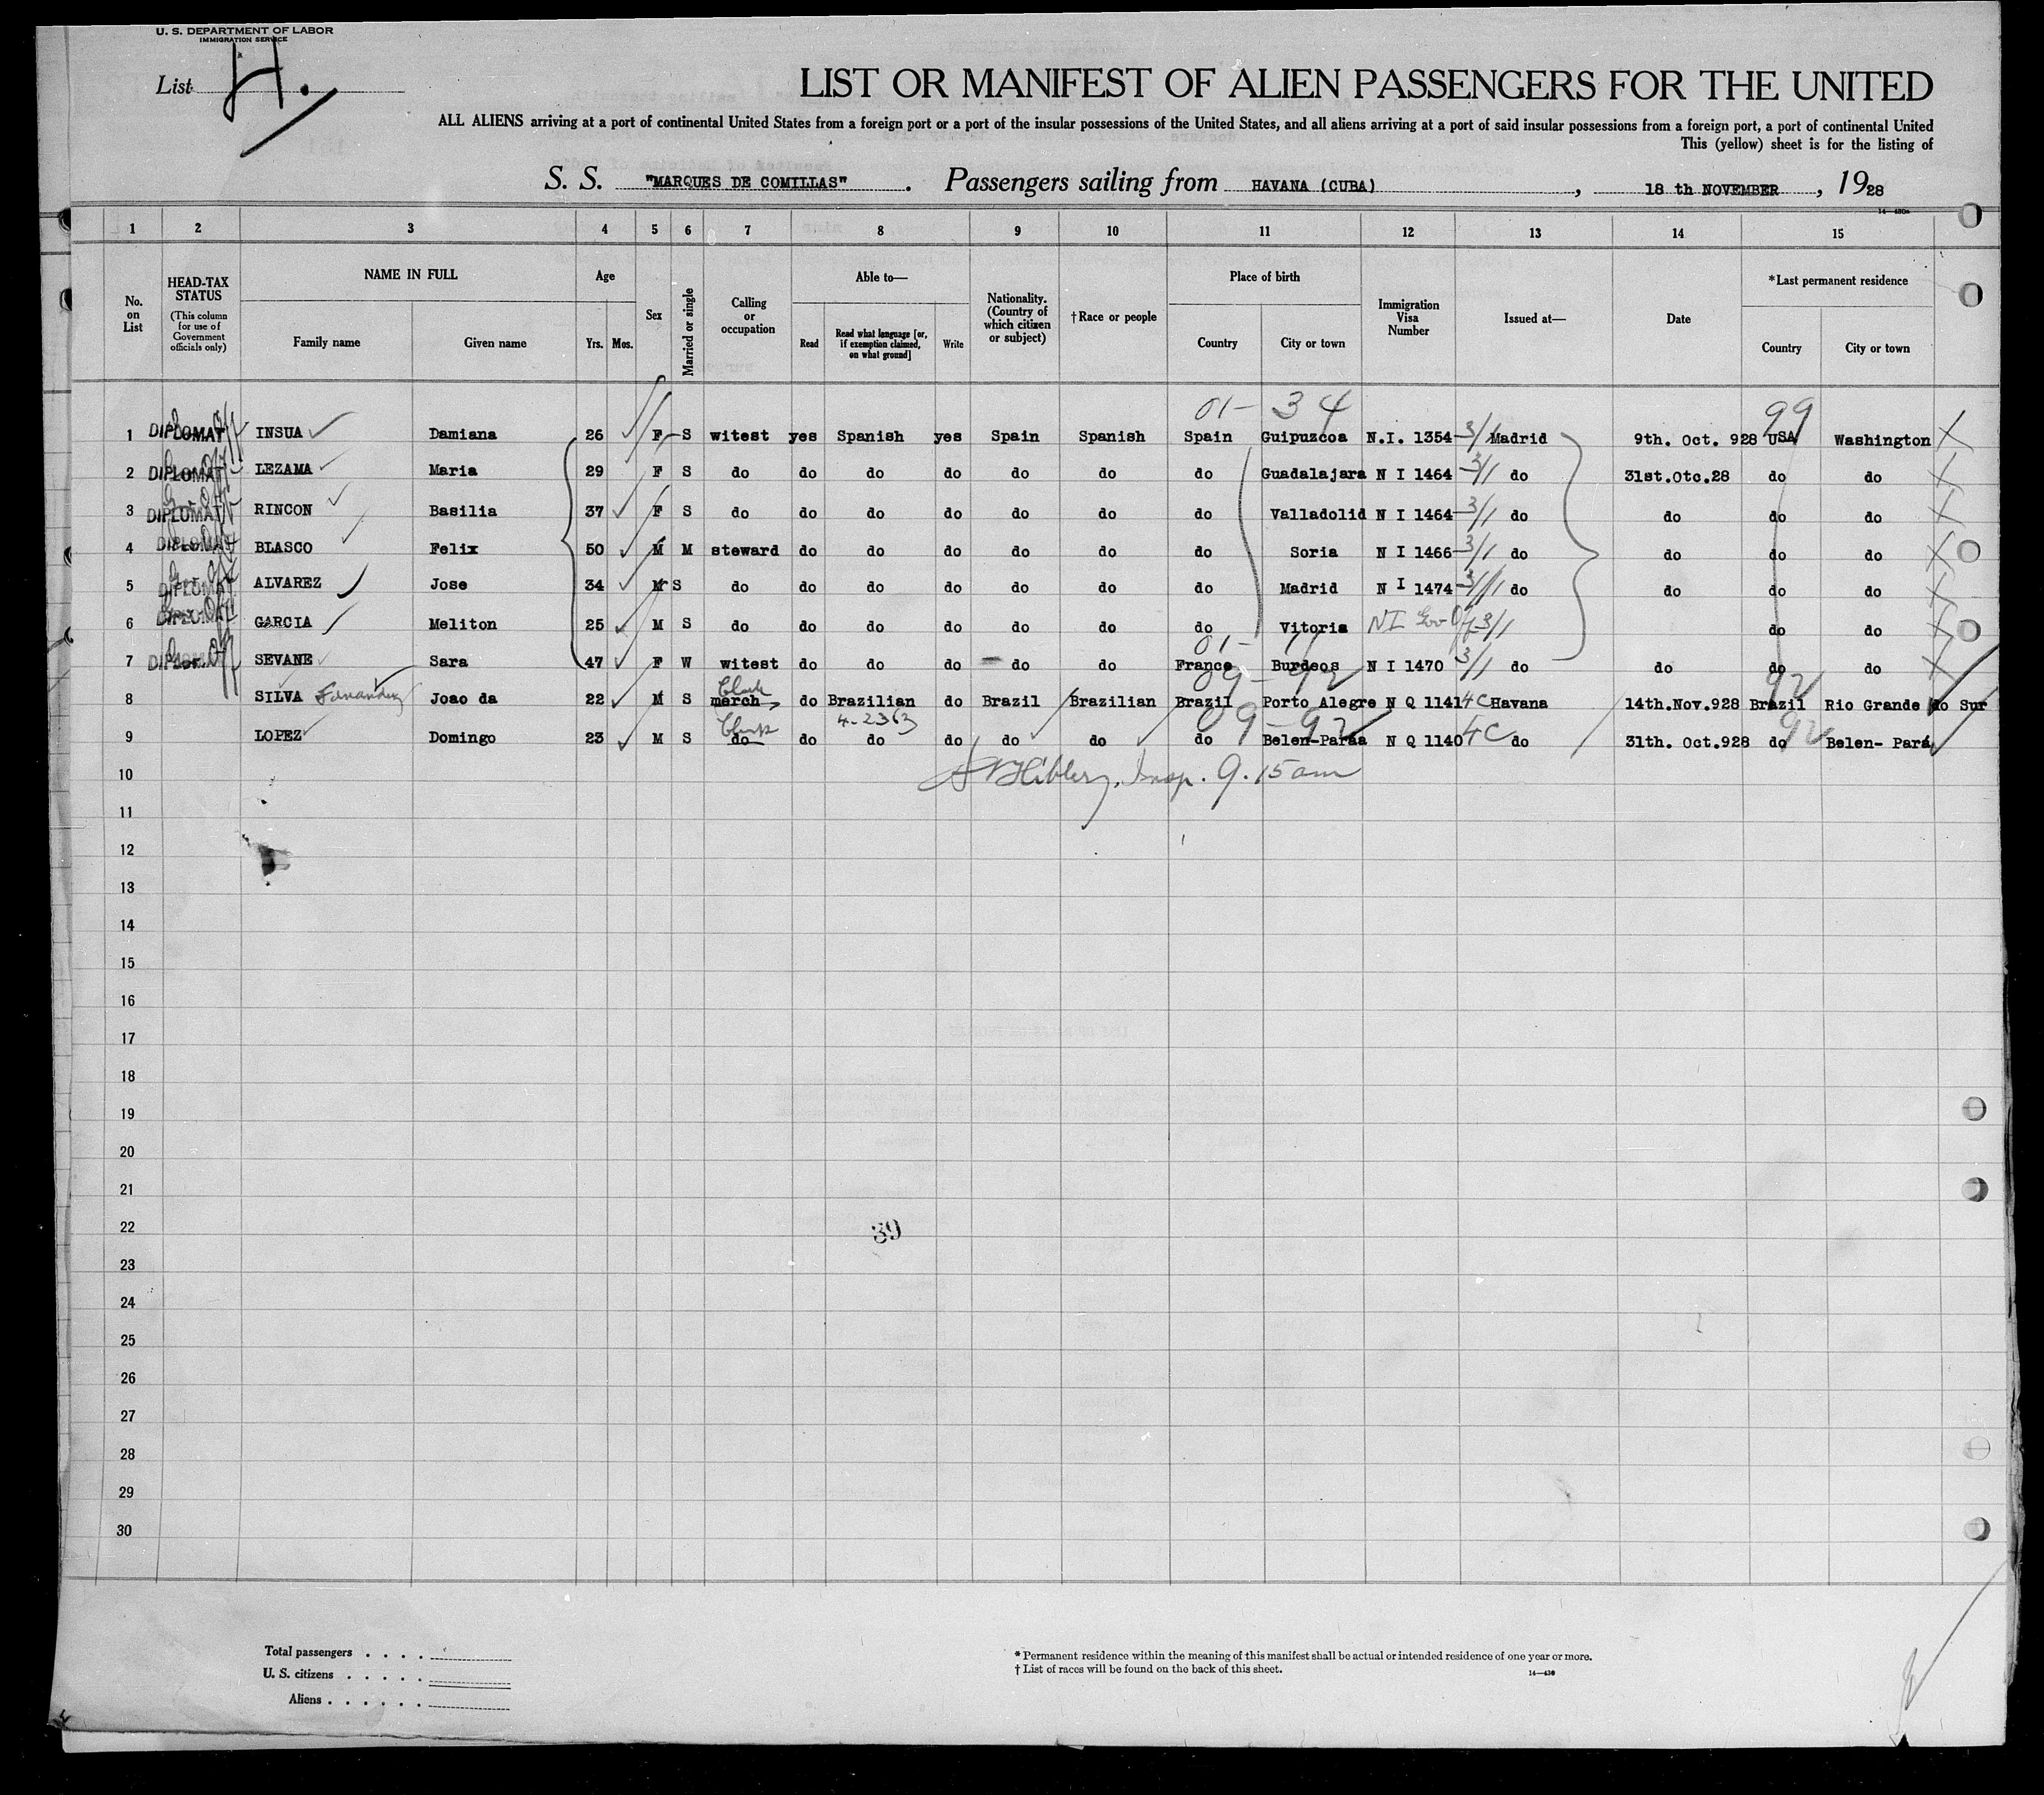 U. S. DEPARTMENT OF LABOR
IMMIGRATION SERVICE
List H.
LIST OR MANIFEST OF ALIEN PASSENGERS FOR THE UNITED
ALL ALIENS arriving at a port of continental United States from a foreign port or a port of the insular possessions of the United States, and all aliens arriving at a port of said insular possessions from a foreign port, a port of continental United
This (yellow) sheet is for the listing of
S. S. "MARQUES DE COMILLAS". Passengers sailing from HAVANA (CUBA), 18 th NOVEMBER, 1928
14—430a
1 2 3 4 5 6 7 8 9 10 11 12 13 14 15
No. on List
HEAD-TAX STATUS (This column for use of Government officials only)
NAME IN FULL Family name Given name
Age Yrs. Mos.
Sex
Married or single
Calling or occupation
Able to— Read Read what language [or, if exemption claimed, on what ground] Write
Nationality. (Country of which citizen or subject)
†Race or people
Place of birth Country City or town
Immigration Visa Number
Issued at—
Date
*Last permanent residence Country City or town
01- 34 99
1 DIPLOMAT INSUA Damiana 26 F S witest yes Spanish yes Spain Spanish Spain Guipuzcoa N.I. 1354 3/1 Madrid 9th. Oct. 928 USA Washington
2 DIPLOMAT LEZAMA Maria 29 F S do do do do do do do Guadalajara N I 1464 3/1 do 31st.Otc.28 do do
3 DIPLOMAT RINCON Basilia 37 F S do do do do do do do Valladolid N I 1464 3/1 do do do do
4 DIPLOMAT BLASCO Felix 50 M M steward do do do do do do Soria N I 1466 3/1 do do do do
5 DIPLOMAT ALVAREZ Jose 34 M S do do do do do do do Madrid N I 1474 3/1 do do do do
6 DIPLOMAT GARCIA Meliton 25 M S do do do do do do do Vitoria NI 3/1 do do
7 DIPLOMAT SEVANE Sara 47 F W witest do do do do do France Burdeos N I 1470 3/1 do do do do
8 SILVA Joao da 22 M S Clerk merch do Brazilian do Brazil Brazilian Brazil Porto Alegre N Q 1141 4C Havana 14th.Nov.928 Brazil 92 Rio Grande do Sur
4-2363 09-92
9 LOPEZ Domingo 23 M S Clerk do do do do do do do Belen-Paraa N Q 1140 4C do 31th. Oct.928 do 92 Belen- Pará
10 Insp. 9.15 am
11
12
13
14
15
16
17
18
19
20
21
22
39
23
24
25
26
27
28
29
30
Total passengers
U. S. citizens
Aliens
* Permanent residence within the meaning of this manifest shall be actual or intended residence of one year or more.
† List of races will be found on the back of this sheet. 14—430